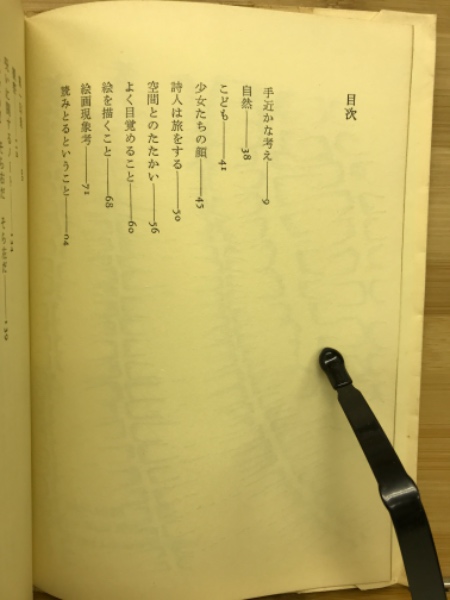 目次
手近かな考え――9
自然――38
こども――41
少女たちの顔――45
詩人は旅をする――50
空間とのたたかい――56
よく目覚めること――60
絵を描くこと――68
絵画現象考――71
読みとるということ――94